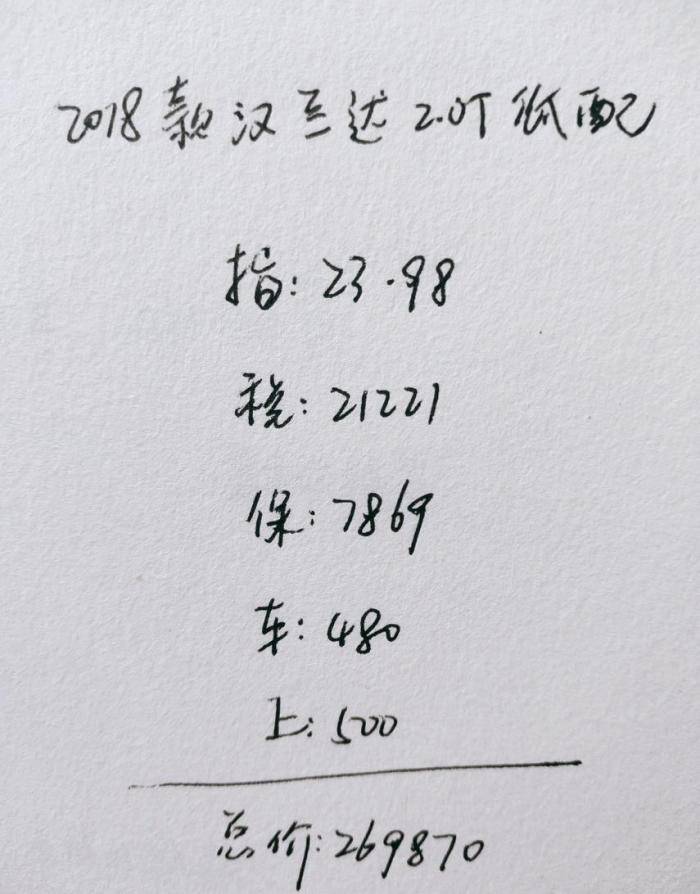 2018款汉兰达2.0T低配
指:23.98
税:21221
保:7869
车:480
上:500
总价:269870